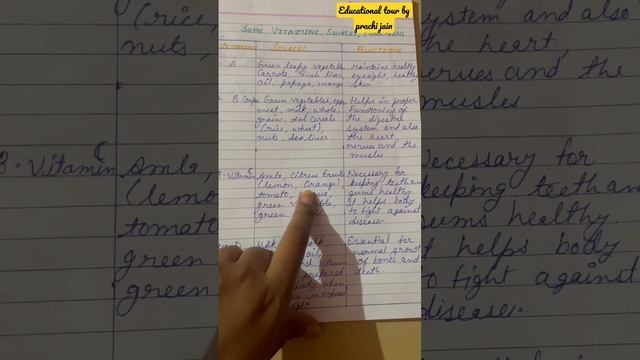 Educational tour by
prachi jain
SOME VITAMINS, SOURCES, FUNCTIONS
VITAMINS SOURCES FUNCTIONS
A Green leafy vegetable, Maintains healthy
Carrots, fish liver eyesight, healthy
oil, papaya, mango skin
B Green vegetables, Helps in proper
meat, milk, whole functioning of
grain, cereals the digestive
(rice, wheat), system and also
nuts, liver the heart,
nerves and the
muscles
C
Vitamin Amla, citrus fruits Necessary for
(lemon, Orange), keeping teeth and
tomato, gums healthy
green It helps body
green to fight against
disease.
Essential for
oil, normal growth
of bones and
prepared teeth
when
is exposed
(rice, system and also
nuts, the heart,
nerves and the
muscles
C
3- Vitamin Amla, Necessary for
(lemon keeping teeth and
tomato gums healthy
green It helps body
green to fight against
disease.